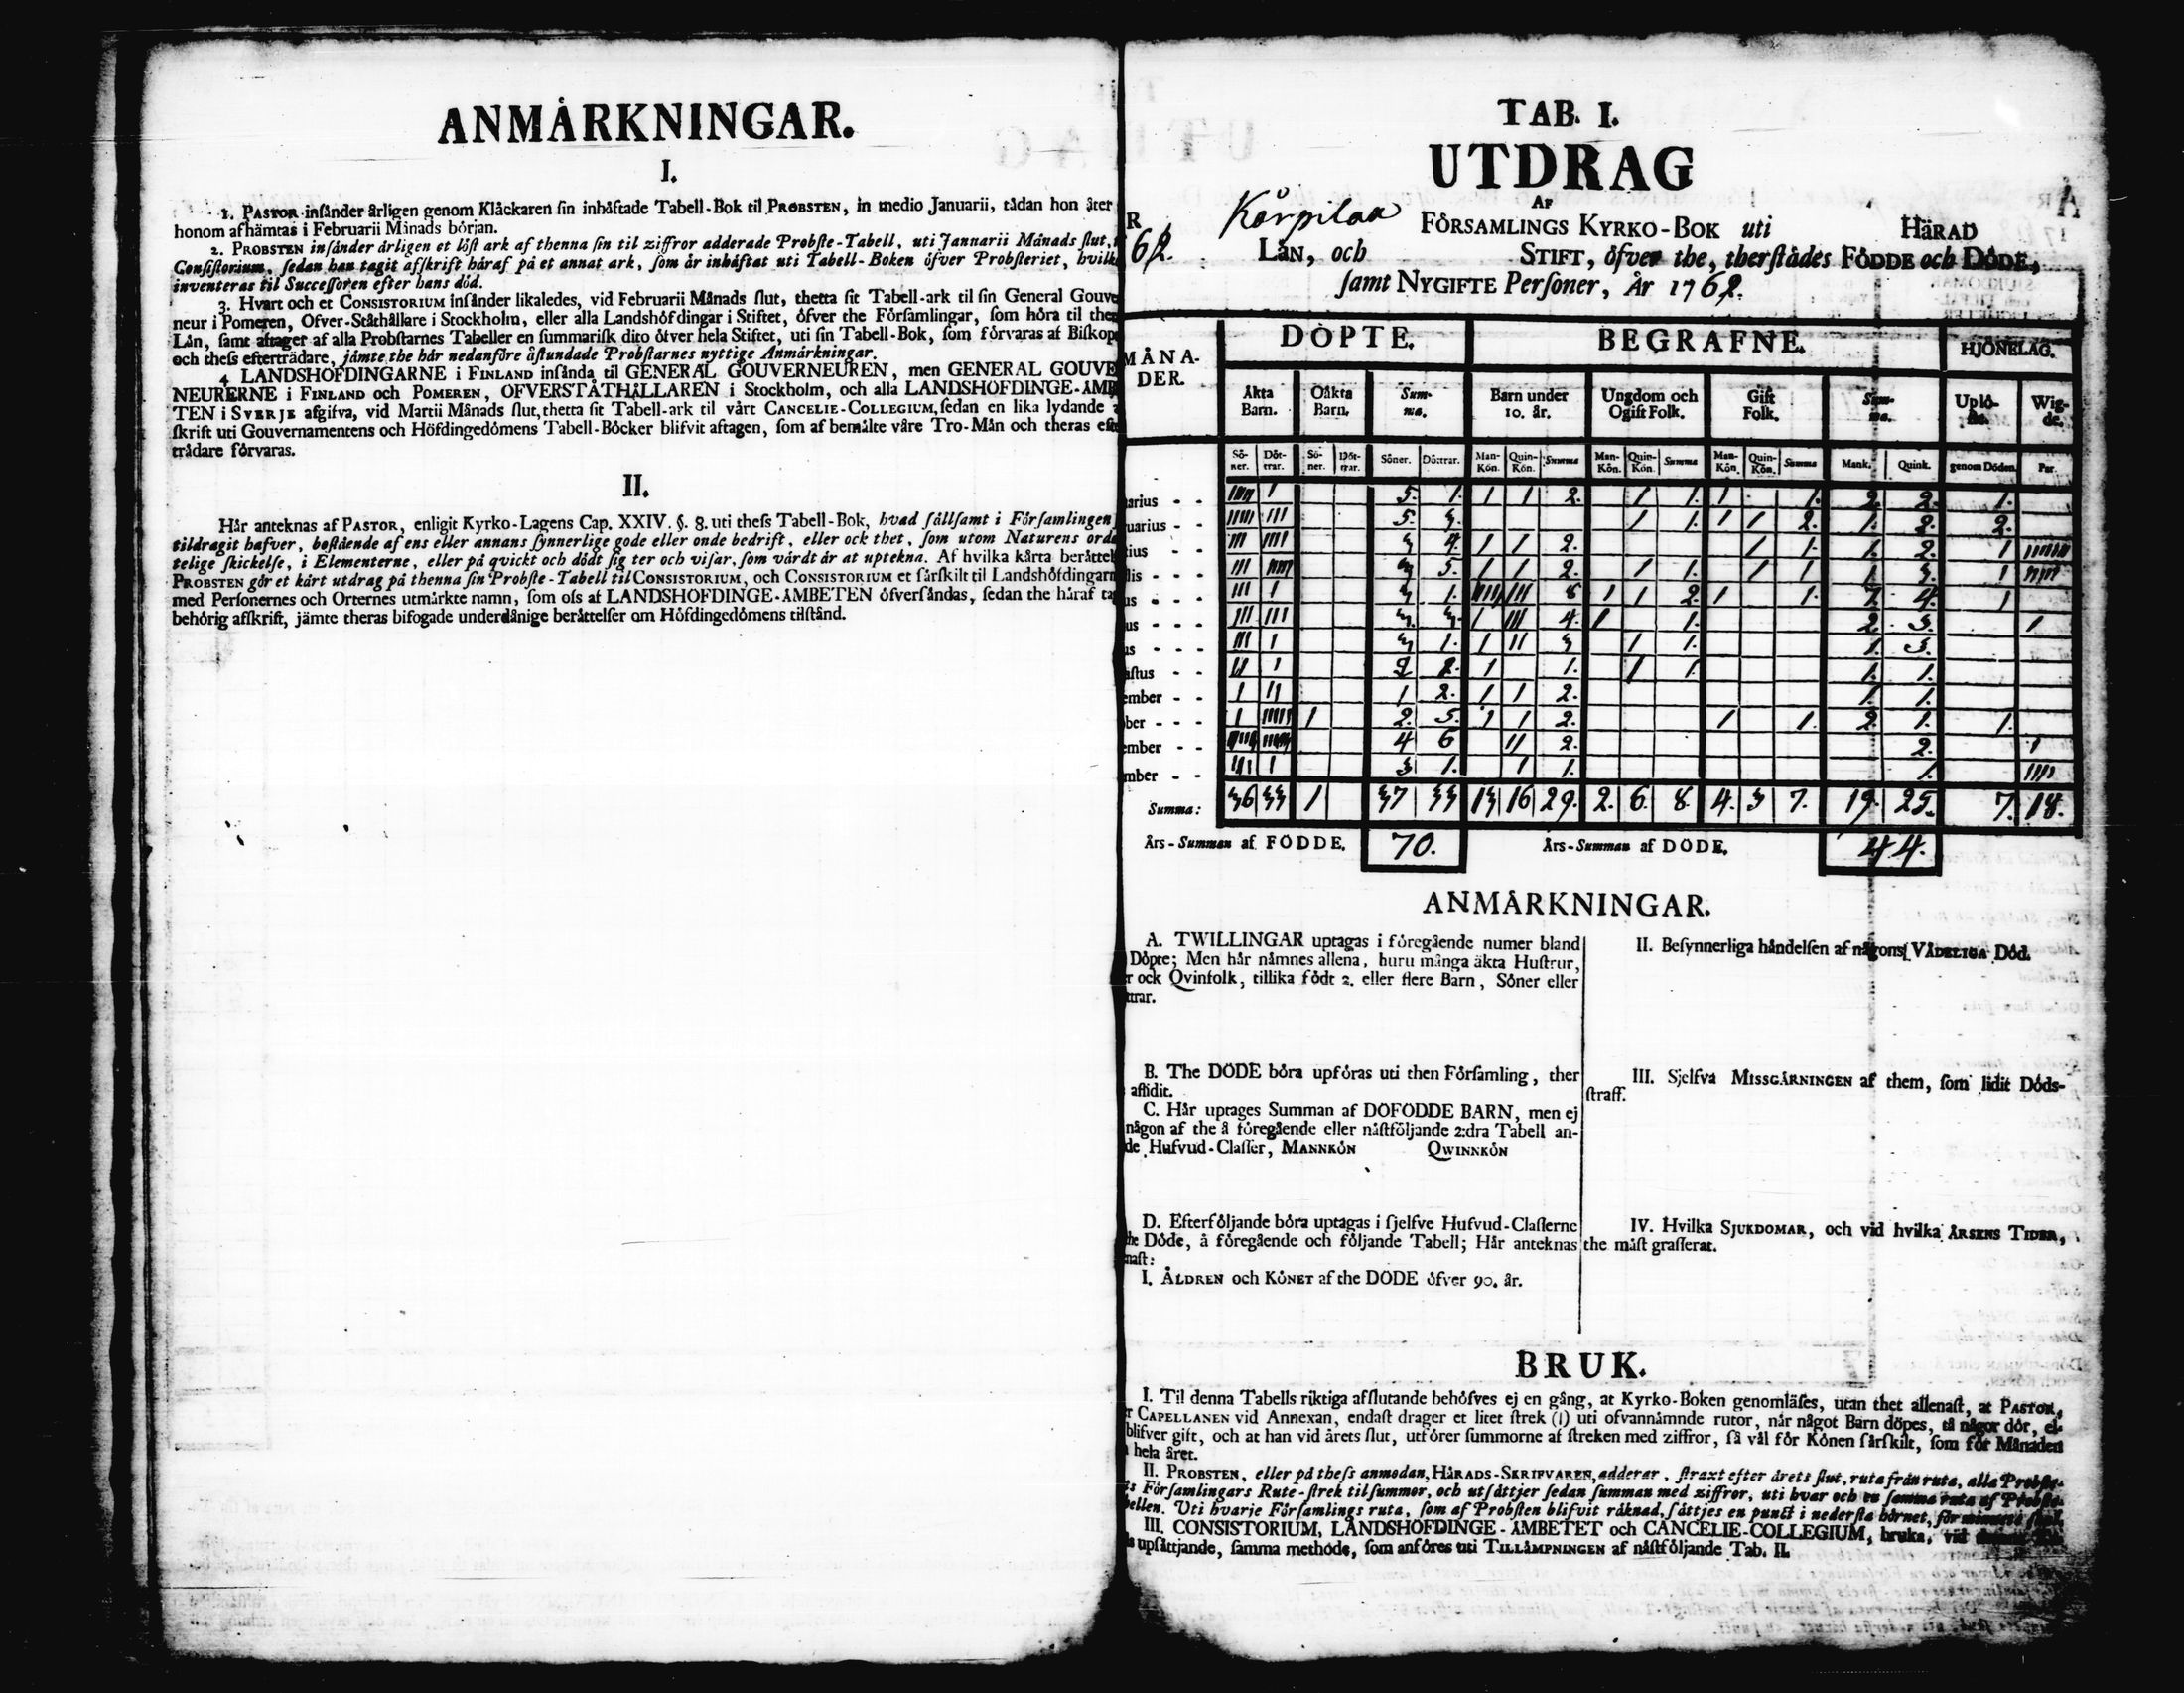 ANMÅRKNINGAR.
I.
1. PASTOR insånder årligen genom Klåckaren sin inhåftade Tabell-Bok til PROBSTEN, in medio Januarii, tådan hon åter
honom afhämtas i Februarii Månads början.
2. PROBSTEN insånder årligen et löst ark af thenna sin til ziffror adderade Probste-Tabell, uti Jannarii Månads slut,
Consistorium, sedan han tagit afskrift håraf på et annat ark, som år inhåftat uti Tabell-Boken öfver Probsteriet, hvilk
inventeras til Successoren efter hans död.
3. Hvart och et CONSISTORIUM insånder likaledes, vid Februarii Månads slut, thetta sit Tabell-ark til sin General Gouve
neur i Pomeren, Ofver-Ståthållare i Stockholm, eller alla Landshöfdingar i Stiftet, öfver the Församlingar, som höra til the
Lån, samt aftager af alla Probstarnes Tabeller en summarisk dito öfver hela Stiftet, uti sin Tabell-Bok, som förvaras af Biskop
och thess efterträdare, jåmte the hår nedanföre åstundade Probstarnes nyttige Anmårkningar.
4 LANDSHÖFDINGARNE i FINLAND insånda til GENERAL GOUVERNEUREN, men GENERAL GOUVE
NEURERNE i FINLAND och POMEREN, OFVERSTÅTHÅLLAREN i Stockholm, och alla LANDSHÖFDINGE-ÅMB
TEN i SVERJE afgifva, vid Martii Månads slut, thetta sit Tabell-ark til vårt CANCELIE-COLLEGIUM, sedan en lika lydande
skrift uti Gouvernamentens och Höfdingedömens Tabell-Böcker blifvit aftagen, som af bemålte våre Tro-Mån och theras eft
trådare förvaras.
II.
Hår anteknas af PASTOR, enligit Kyrko-Lagens Cap. XXIV. §. 8. uti thess Tabell-Bok, hvad sållsamt i Församlingen
tildragit hafver, bestående af ens eller annans synnerlige gode eller onde bedrift, eller ock thet, som utom Naturens orde
telige skickelse, i Elementerne, eller på qvickt och dödt sig ter och visar, som vårdt år at uptekna. Af hvilka kårta beråttel
PROBSTEN gör et kårt utdrag på thenna sin Probste-Tabell til CONSISTORIUM, och CONSISTORIUM et sårskilt til Landshöfdingarn
med Personernes och Orternes utmårkte namn, som oss af LANDSHÖFDINGE-ÅMBETEN öfversåndas, sedan the håraf ta
behörig afskrift, jämte theras bifogade underdånige beråttelser om Höfdingedömens tilstånd.
TAB. I.
UTDRAG
AF
R Kårpilax FÖRSAMLINGS KYRKO-BOK uti HÄRAD
62. LÅN, och STIFT, öfver the, therstådes FÖDDE och DÖDE,
samt NYGIFTE Personer, År 1762.
MÅNA-DER. DÖPTE. BEGRAFNE. HJONELAG.
Åkta Barn. Oåkta Barn. Sum-ma. Barn under 10. år. Ungdom och Ogift Folk. Gift Folk. Sum-ma. Uplö-ste. Wig-de.
Sö-ner. Döt-trar. Sö-ner. Döt-trar. Söner. Döttrar. Man-Kön. Quin-Kön. Summa Man-Kön. Quin-Kön. Summa Man-Kön. Quin-Kön. Summa Mank. Quink. genom Döden Par.
arius - - IIIII I 5. 1. I I 2. I 1. I 1. 2. 2. 1.
uarius - - IIIII III 5. 3. I 1. I I 2. 1. 2. 2.
tius - - III IIII 3 4. I I 2. I 1. 1. 2. 1
lis - - - III IIIII 3 5. I I 2. I 1. I 1 1. 3. 1
us - - - III I 3 1. IIIII III 8 I I 2. I 1. 7. 4. 1
us - - - III III 3. 3. I III 4. I 1. 2. 3. I
us - - - III I 3 1. I II 3 I 1. 1. 3.
stus - - II I 2 I 1. I 1. 1. 1.
ember - - I II 1 2. I I 2. 1. 1.
ber - - - I IIIII I 2. 5. I I 2. I 1. 2. 1. 1.
ember - - IIII IIIIII 4 6 II 2. 2. I
mber - - III I 3 1. I 1. 1. IIII
Summa: 36 33 1 37 33 13 16 29. 2. 6. 8. 4. 3 7. 19. 25. 7. 18.
Års-Summan af FÖDDE. 70. Års-Summan af DÖDE. 44.
ANMÅRKNINGAR.
A. TWILLINGAR uptagas i föregående numer bland
Döpte; Men hår nåmnes allena, huru många äkta Hustrur,
r ock Qvinfolk, tillika födt 2. eller flere Barn, Söner eller
ttrar.
B. The DÖDE böra upföras uti then Församling, ther
aflidit.
C. Hår uptages Summan af DÖFÖDDE BARN, men ej
någon af the å föregående eller nåstföljande 2:dra Tabell an-
de Hufvud-Classer, MANNKÖN QWINNKÖN
D. Efterföljande böra uptagas i sjelfve Hufvud-Classerne
the Döde, å föregående och följande Tabell; Hår anteknas
nast:
I. ÅLDREN och KÖNET af the DÖDE öfver 90. år.
II. Besynnerliga håndelsen af någons VÅDELIGA Död.
III. Sjelfva MISSGÅRNINGEN af them, som lidit Döds-
straff.
IV. Hvilka SJUKDOMAR, och vid hvilka ÅRSENS TIDER,
the måst grasserat.
BRUK.
I. Til denna Tabells riktiga afslutande behöfves ej en gång, at Kyrko-Boken genomläses, utan thet allenast, at PASTOR,
r CAPELLANEN vid Annexan, endast drager et litet strek (I) uti ofvannåmnde rutor, når något Barn döpes, tå någor dör, el-
blifver gift, och at han vid årets slut, utförer summorne af streken med ziffror, så vål för Könen sårskilt, som för Månaden
hela året.
II. PROBSTEN, eller på thess anmodan, HÅRADS-SKRIFVAREN, adderar, straxt efter årets slut, ruta från ruta, alla Probste-
ts Församlingars Rute-strek til summor, och utsåttjer sedan summan med ziffror, uti hvar och en samma ruta af Probste-
bellen. Uti hvarje Församlings ruta, som af Probsten blifvit råknad, såttjes en punct i nedersta hörnet, för
III. CONSISTORIUM, LANDSHÖFDINGE-ÅMBETET och CANCELIE-COLLEGIUM, bruka, vid
upsåttjande, samma methode, som anföres uti TILLÅMPNINGEN af nåstföljande Tab. II.